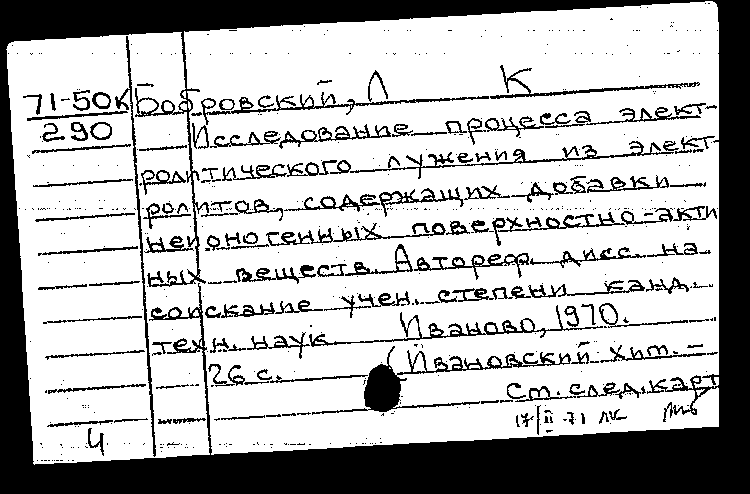 71-50К Бобровский, Л К
290 Исследование процесса элект-
ролитического лужения из элект-
ролитов, содержащих добавки
неионогенных поверхностно-акти
ных веществ. Автореф. дисс. на
соискание учен. степени канд.
техн. наук. Иваново, 1970.
26 с. (Ивановский хим.-
См. след. карт
17/II-71 ЛК
4